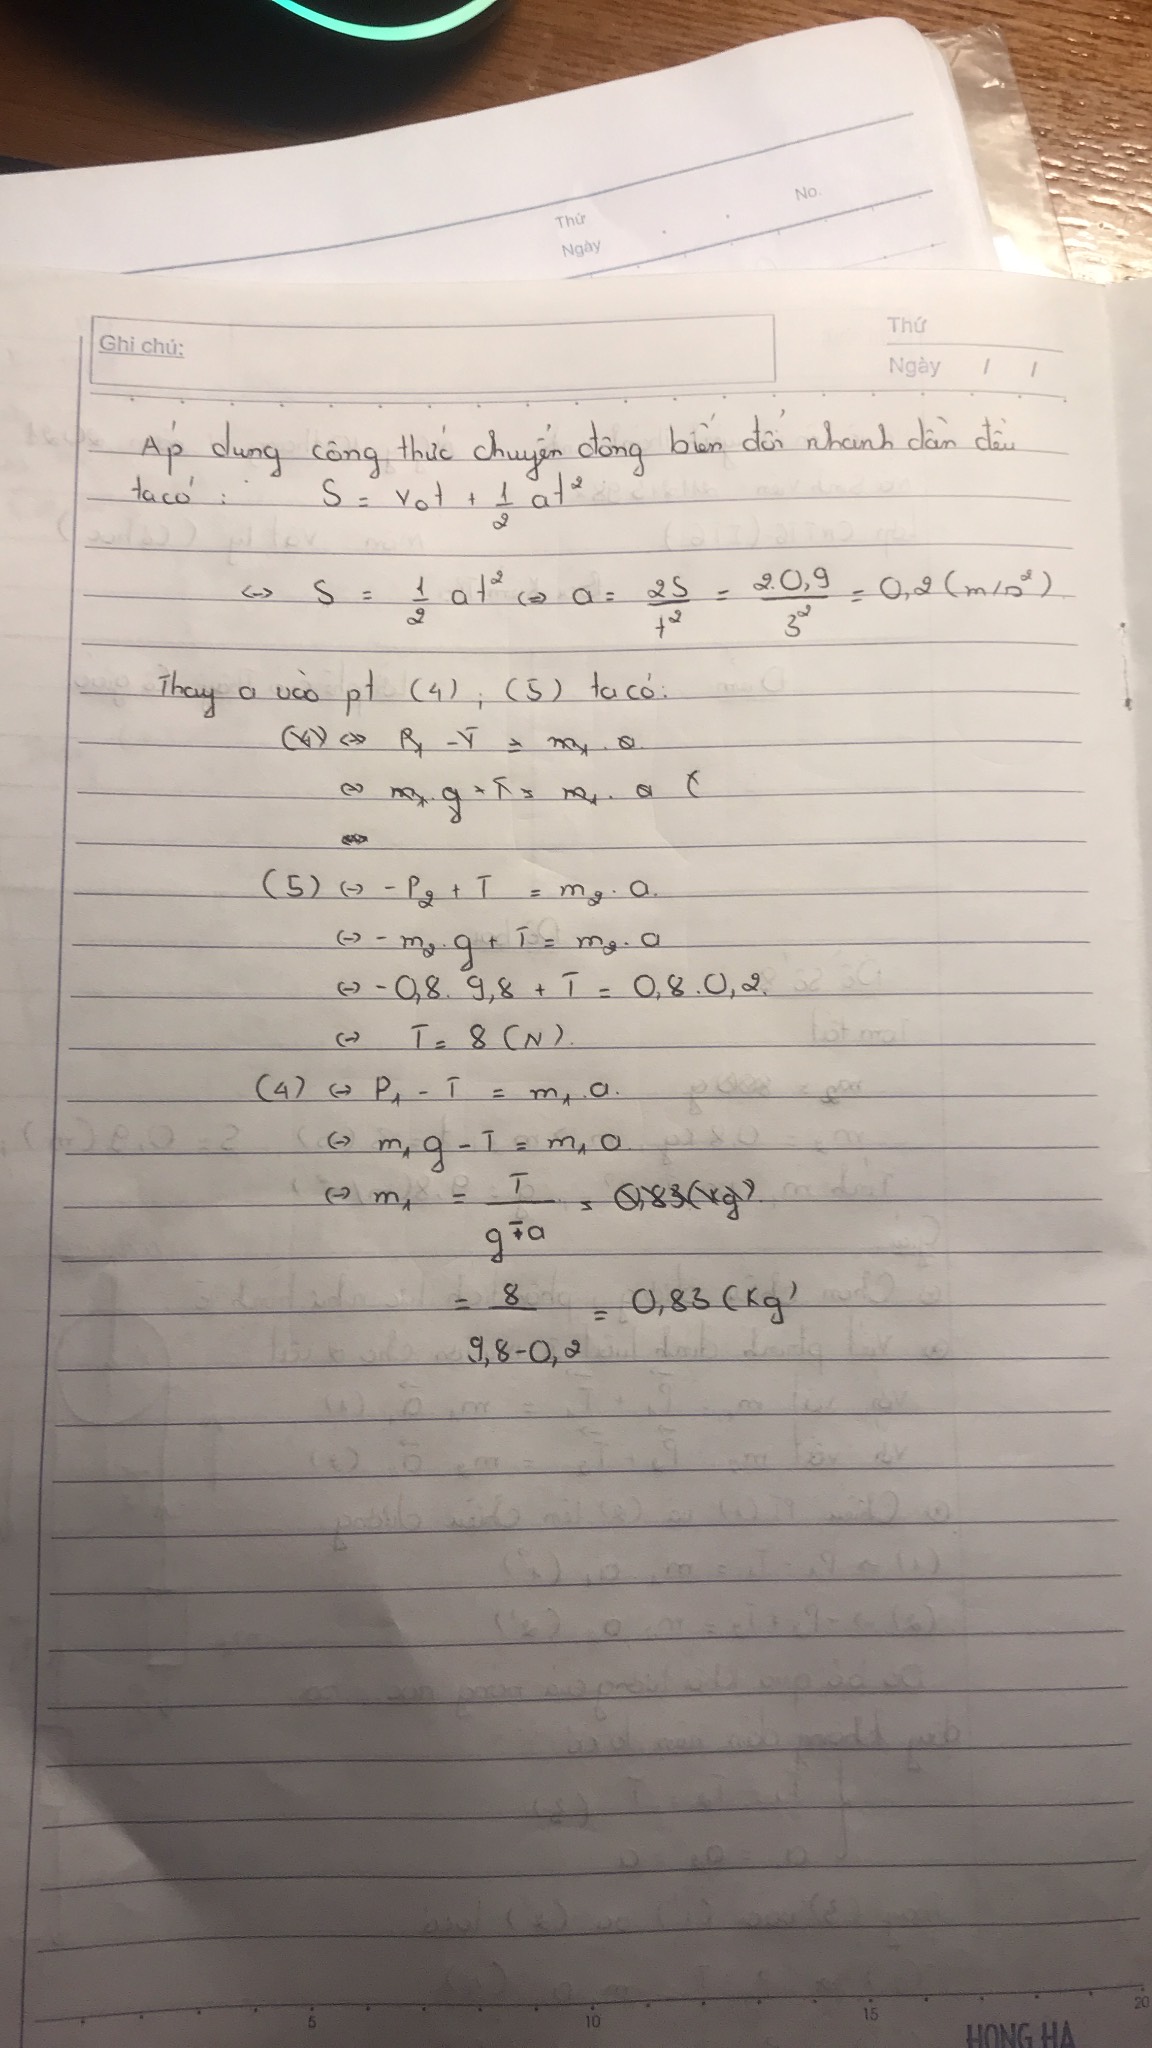 Thứ
No.
Ngày
Ghi chú:
Thứ
Ngày / /
Áp dụng công thức chuyển động biến đổi nhanh dần đều
ta có : S = v₀t + 1/2 at²
<=> S = 1/2 at² <=> a = 2S/t² = 2.0,9/3² = 0,2 (m/s²)
Thay a vào pt (4), (5) ta có:
(4) <=> P₁ - T = m₁ . a
<=> m₁. g - T = m₁. a (
(5) <=> - P₂ + T = m₂. a.
<=> - m₂. g + T = m₂. a
<=> - 0,8. 9,8 + T = 0,8. 0,2.
<=> T = 8 (N).
(4) <=> P₁ - T = m₁.a.
<=> m₁ g - T = m₁ a
<=> m₁ = T/g-a = 0,83(kg)
= 8/9,8-0,2 = 0,83 (Kg)
5 10 15 20
HONG HA